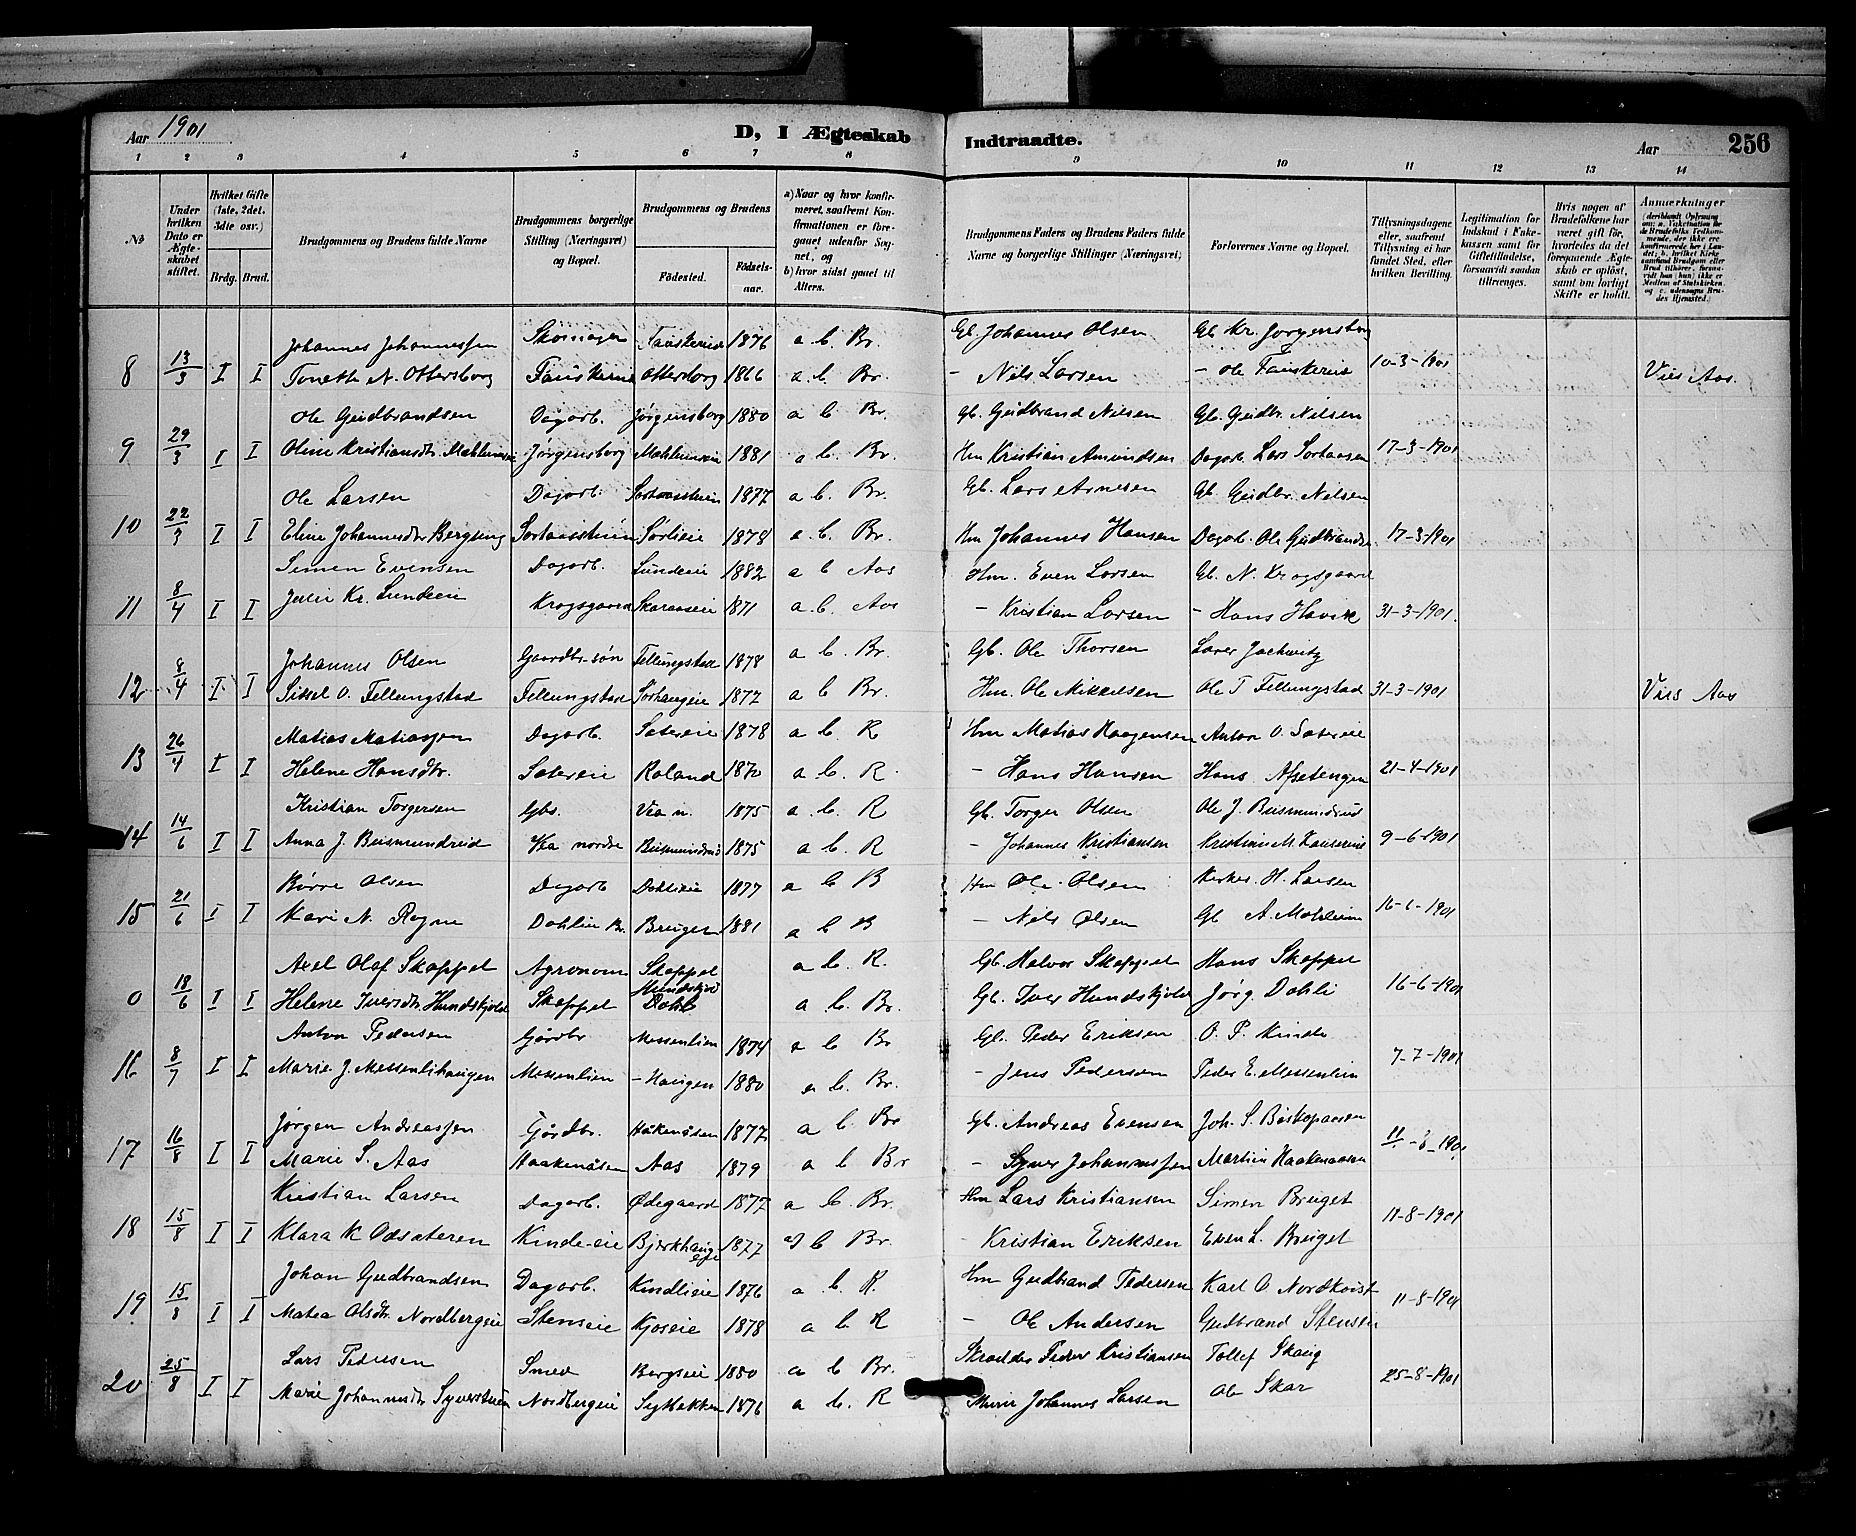 Aar 1901 D, I Ægteskab Indtraadte. Aar 256
1 2 3 4 5 6 7 8 9 10 11 12 13 14
No
Under hvilken Dato er Ægteskabet stiftet.
Hvilket Gifte (1ste, 2det, 3die osv.)
Brdg. Brud.
Brudgommens og Brudens fulde Navne
Brudgommens borgerlige Stilling (Næringsvei) og Bopæl.
Brudgommens og Brudens
Fødested. Fødselsaar.
a) Naar og hvor konfirmeret, saafremt Konfirmationen er foregaaet udenfor Sognet, og
b) hvor sidst gaaet til Alters.
Brudgommens Faders og Brudens Faders fulde Navne og borgerlige Stillinger (Næringsvei)
Forlovernes Navne og Bopæl.
Tillysningsdagene eller, saafremt Tillysning ei har fundet Sted, efter hvilken Bevilling.
Legitimation for Indskud i Enkekassen samt for Giftetilladelse, forsaavidt saadan tiltrænges.
Hvis nogen af Brudefolkene har været gift før, hvorledes da det foregaaende Ægteskab er opløst, samt om lovligt Skifte er holdt.
Anmærkninger
Johannes Johannessen Skomager Fauskerud 1876 a b. Br. Gb. Johannes Olsen Gb. Kr. Jørgensborg
8 13/3 I I Toneth N. Ottersborg Ottersborg 1866 a b Br. - Nils Larsen - Ole 10-3-1901 Vies Aas.
Ole Gudbrandsen Dagarb. Jørgensborg 1880 a b Br. Gb. Gudbrand Nilsen Gb. Gudbr. Nilsen
9 29/3 I I Oline Kristiansdtr. Jørgensborg 1881 a b. Br. Hm Kristian Amundsen Dagarb. Lars 17-3-1901
Ole Larsen Dagarb. 1877 a b. Br. Gb. Lars Arnesen Gb. Gudbr. Nilsen
10 22/3 I I Eline Johannesdtr Bergseng Sørlieie 1878 a b. Br. Hm Johannes Hansen Dagarb. Ole Gudbrandse 17-3-1901
Simen Evensen Dagarb. Lundeeie 1882 a b Aas Hm. Even Larsen Gb. N. Krogsgaard
11 8/4 I I Julie Kr. Lundeeie Krogsgaard Skaraaseie 1871 a. b. Aas - Kristian Larsen - Hans 31-3-1901.
Johannes Olsen Gaardbr. søn Fellungstad 1878 a b. Br. Gb. Ole Thorsen Lærer
12 8/4 I I Sissel O. Fellungstad Fellungstad 1877 a b Br. Hm. Ole Mikkelsen Ole T Fellungstad 31-3-1901 Vies Aas
Matias Matiassen Dagarb. Sætereie 1878 a b. R Hm Matias Haagensen Anton O. Sætereie
13 26/4 I I Helene Hansdtr. Sætereie Røland 1870 a b. R. - Hans Hansen Hans Afsetengen 21-4-1901
Kristian Torgersen Gbr. Via n. 1875 a. b. R Gb. Torger Olsen Ole J. Busmundrud
14 14/6 I I Anna J. Busmundrud Via nordre Busmundrud 1875 a b. R - Johannes Kristiansen Kristian M. 9-6-1901
Børre Olsen Dagarb Dahlieie 1877 a b B Hm Ole Olsen Kirkes. H. Larsen
15 21/6 I I Kari N. Rogne Dahlien Br. 1881 a b B - Nils Olsen Gb A. Mæhlum 16-6-1901
Axel Olaf Skappel Agronom Skappel a b. R. Gb. Halvor Skappel Hans Skappel
0 18/6 I I Helene Iversdtr Hundskjold Skappel Hundskjold Dahl a b. Br. Gb. Iver Hundskjold Jørg. Dahli 16-6-1901
Anton Pedersen Gårdbr Messenlien 1874 a b Br Gb. Peder Eriksen O. P. Kinde
16 8/7 I I Marie J. Messenlihaugen Messenlien - Haugen 1880 a b. Br. - Jens Pedersen Peder E. Messenlien 7-7-1901
Jørgen Andreassen Gårdbr. Håkenåsen 1877 a b Br Gb. Andreas Evensen Joh. S. Biskopaasen
17 16/8 I I Marie S. Aas Haakenåsen Aas 1879 a b Br - Syver Johannessen Martin Haakenaasen 11-8-1901
Kristian Larsen Dagarb. Ødegaard 1877 a b. Br. Hm Lars Kristiansen Simen Bruget
18 15/8 I I Klara K Odsæteren Kinde-eie Bjerkhaugeie 1877 a b Br. Kristian Eriksen Even L. Bruget 11-8-1901
Johan Gudbrandsen Dagarb. Kindlieie 1876 a b. R. Hm Gudbrand Pedersen Karl O Nordkvist
19 15/8 I I Matea Olsdtr. Nordbergeie Stenseie Kjoseie 1878 a b R - Ole Andersen Gudbrand Stenseie 11-8-1901
Lars Pedersen Smed Bergseie 1880 a b Br. Skrædder Peder Kristiansen Tollef Skaug
20 25/8 I I Marie Johannesdtr Syverstuen Nordbergeie 1876 a b. R Murer Johannes Larsen Ole Skar 25-8-1901